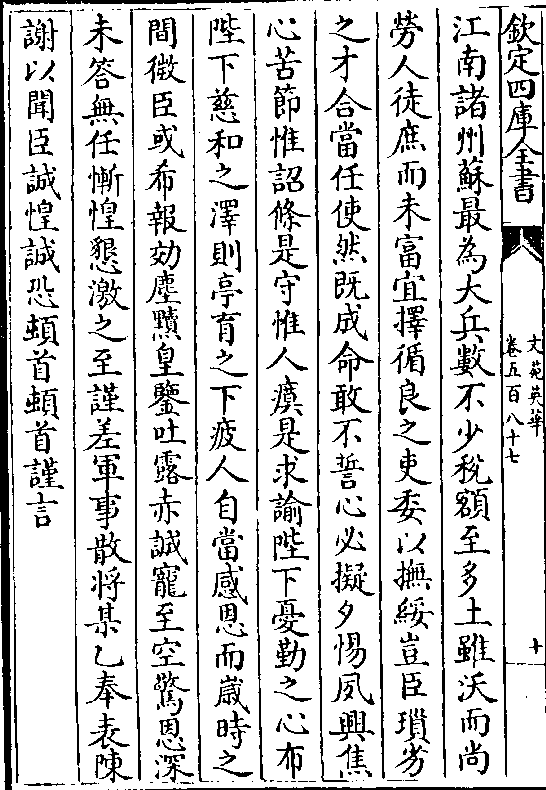 欽定四庫全書
文苑英華
卷五百八十七
十
江南諸州蘇最為大兵數不少稅額至多土雖沃而尚
勞人徒庶而未富宜擇循良之吏委以撫綏豈臣瑣劣
之才合當任使然既成命敢不誓心必擬夕惕夙興焦
心苦節惟詔條是守惟人瘼是求諭陛下憂勤之心布
陛下慈和之澤則亭育之下疲人自當感恩而嵗時之
間微臣或希報効塵黷皇鑒吐露赤誠寵至空驚恩深
未答無任慚惶懇激之至謹差軍事散将某乙奉表陳
謝以聞臣誠惶誠恐頓首頓首謹言